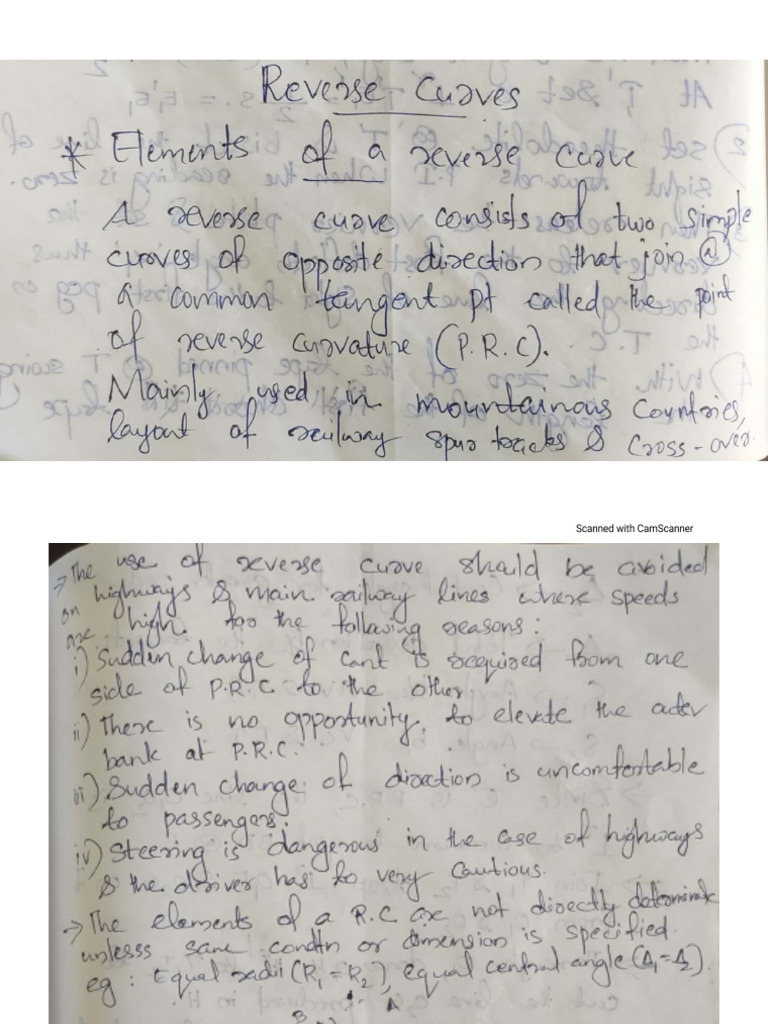 Reverse Curves
* Elements of a reverse curve
A reverse curve consists of two simple
curves of opposite direction that join @
a common tangent pt called the point
of reverse curvature (P.R.C).
Mainly used in mountainous Countries,
layout of railway spur tracks & Cross-over.
Scanned with CamScanner
→ The use of reverse curve should be avoided
on highways & main railway lines where speeds
are high. for the following reasons:
i) Sudden change of Cant is required from one
side of P.R.C. to the other.
ii) There is no opportunity to elevate the outer
bank at P.R.C.
iii) Sudden change of direction is uncomfortable
to passengers.
iv) Steering is dangerous in the case of highways
& the driver has to very Cautious.
→ The elements of a R.C are not directly determinate
unlesss same condtn or dimension is specified.
eg: Equal radii (R₁=R₂), equal central angle (Δ₁=Δ₂).